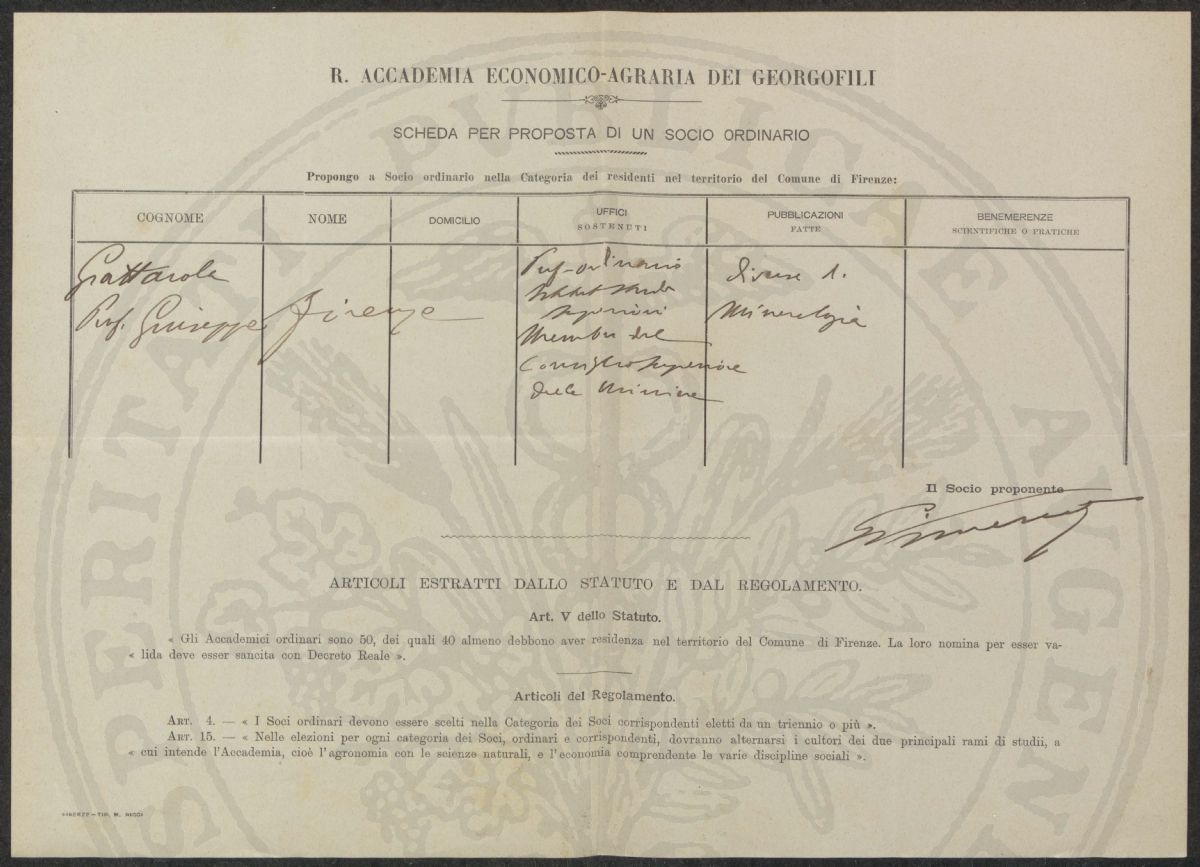 R. ACCADEMIA ECONOMICO-AGRARIA DEI GEORGOFILI
SCHEDA PER PROPOSTA DI UN SOCIO ORDINARIO
Propongo a Socio ordinario nella Categoria dei residenti nel territorio del Comune di Firenze:
COGNOME
NOME
DOMICILIO
UFFICI
SOSTENUTI
PUBBLICAZIONI
FATTE
BENEMERENZE
SCIENTIFICHE O PRATICHE
Grattarola
Prof. Giuseppe
Firenze
Prof. ordinario
Superiori
Membro del
Consiglio Superiore
delle Miniere
diverse di
Mineralogia
Il Socio proponente
ARTICOLI ESTRATTI DALLO STATUTO E DAL REGOLAMENTO.
Art. V dello Statuto.
« Gli Accademici ordinari sono 50, dei quali 40 almeno debbono aver residenza nel territorio del Comune di Firenze. La loro nomina per esser va-
« lida deve esser sancita con Decreto Reale ».
Articoli del Regolamento.
ART. 4. — « I Soci ordinari devono essere scelti nella Categoria dei Soci corrispondenti eletti da un triennio o più ».
ART. 15. — « Nelle elezioni per ogni categoria dei Soci, ordinari e corrispondenti, dovranno alternarsi i cultori dei due principali rami di studii, a
« cui intende l'Accademia, cioè l'agronomia con le scienze naturali, e l'economia comprendente le varie discipline sociali ».
FIRENZE — TIP. M. RICCI
PROSPERITATI PUBLICAE AUGENDAE